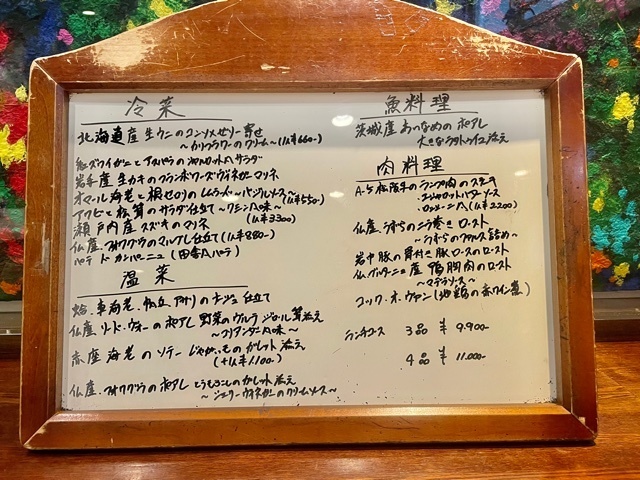 冷菜
北海道産 生ウニのコンソメゼリー寄せ
～カリフラワーのクリーム～(1人¥660-)
紅ズワイガニとアボカドの サラダ
岩手産 生カキのフランボワーズヴィネガーマリネ
オマール海老と根セロリのレムラード～バジルソース～(1人¥550-)
アワビと松茸のサラダ仕立て～クミン風味～
(1人¥3300)
瀬戸内産 スズキのマリネ
仏産 フォワグラのマルブレ仕立て(1人¥880-)
パテ ド カンパーニュ(田舎風パテ)
温菜
蛤、車海老、帆立、アサリのナージュ仕立て
仏産 リード・ヴォーのポアレ 野菜のラビゴット ジロール茸添え
～コリアンダー風味～
赤座海老のソテー じゃがいものガレット添え
(+1人¥1,100-)
仏産 フォワグラのポアレ とうもろこしのガレット添え
～シェリーヴィネガーのクリームソース～
魚料理
茨城産 あいなめのポアレ
大きなラタトゥイユ添え
肉料理
A-5松阪牛のランプ肉のステーキ
エシャロットバターソース
ロッシーニ風(1人¥2200)
仏産、うずらのパイ包み ロースト
～うずらのファルス詰め～
岩中豚の骨付き豚ロースのロースト
仏ブルターニュ産 鴨胸肉のロースト
～マデラソース～
コック・オ・ヴァン(地鶏の赤ワイン煮)
ランチコース 3品 ¥9.900-
4品 ¥11.000-